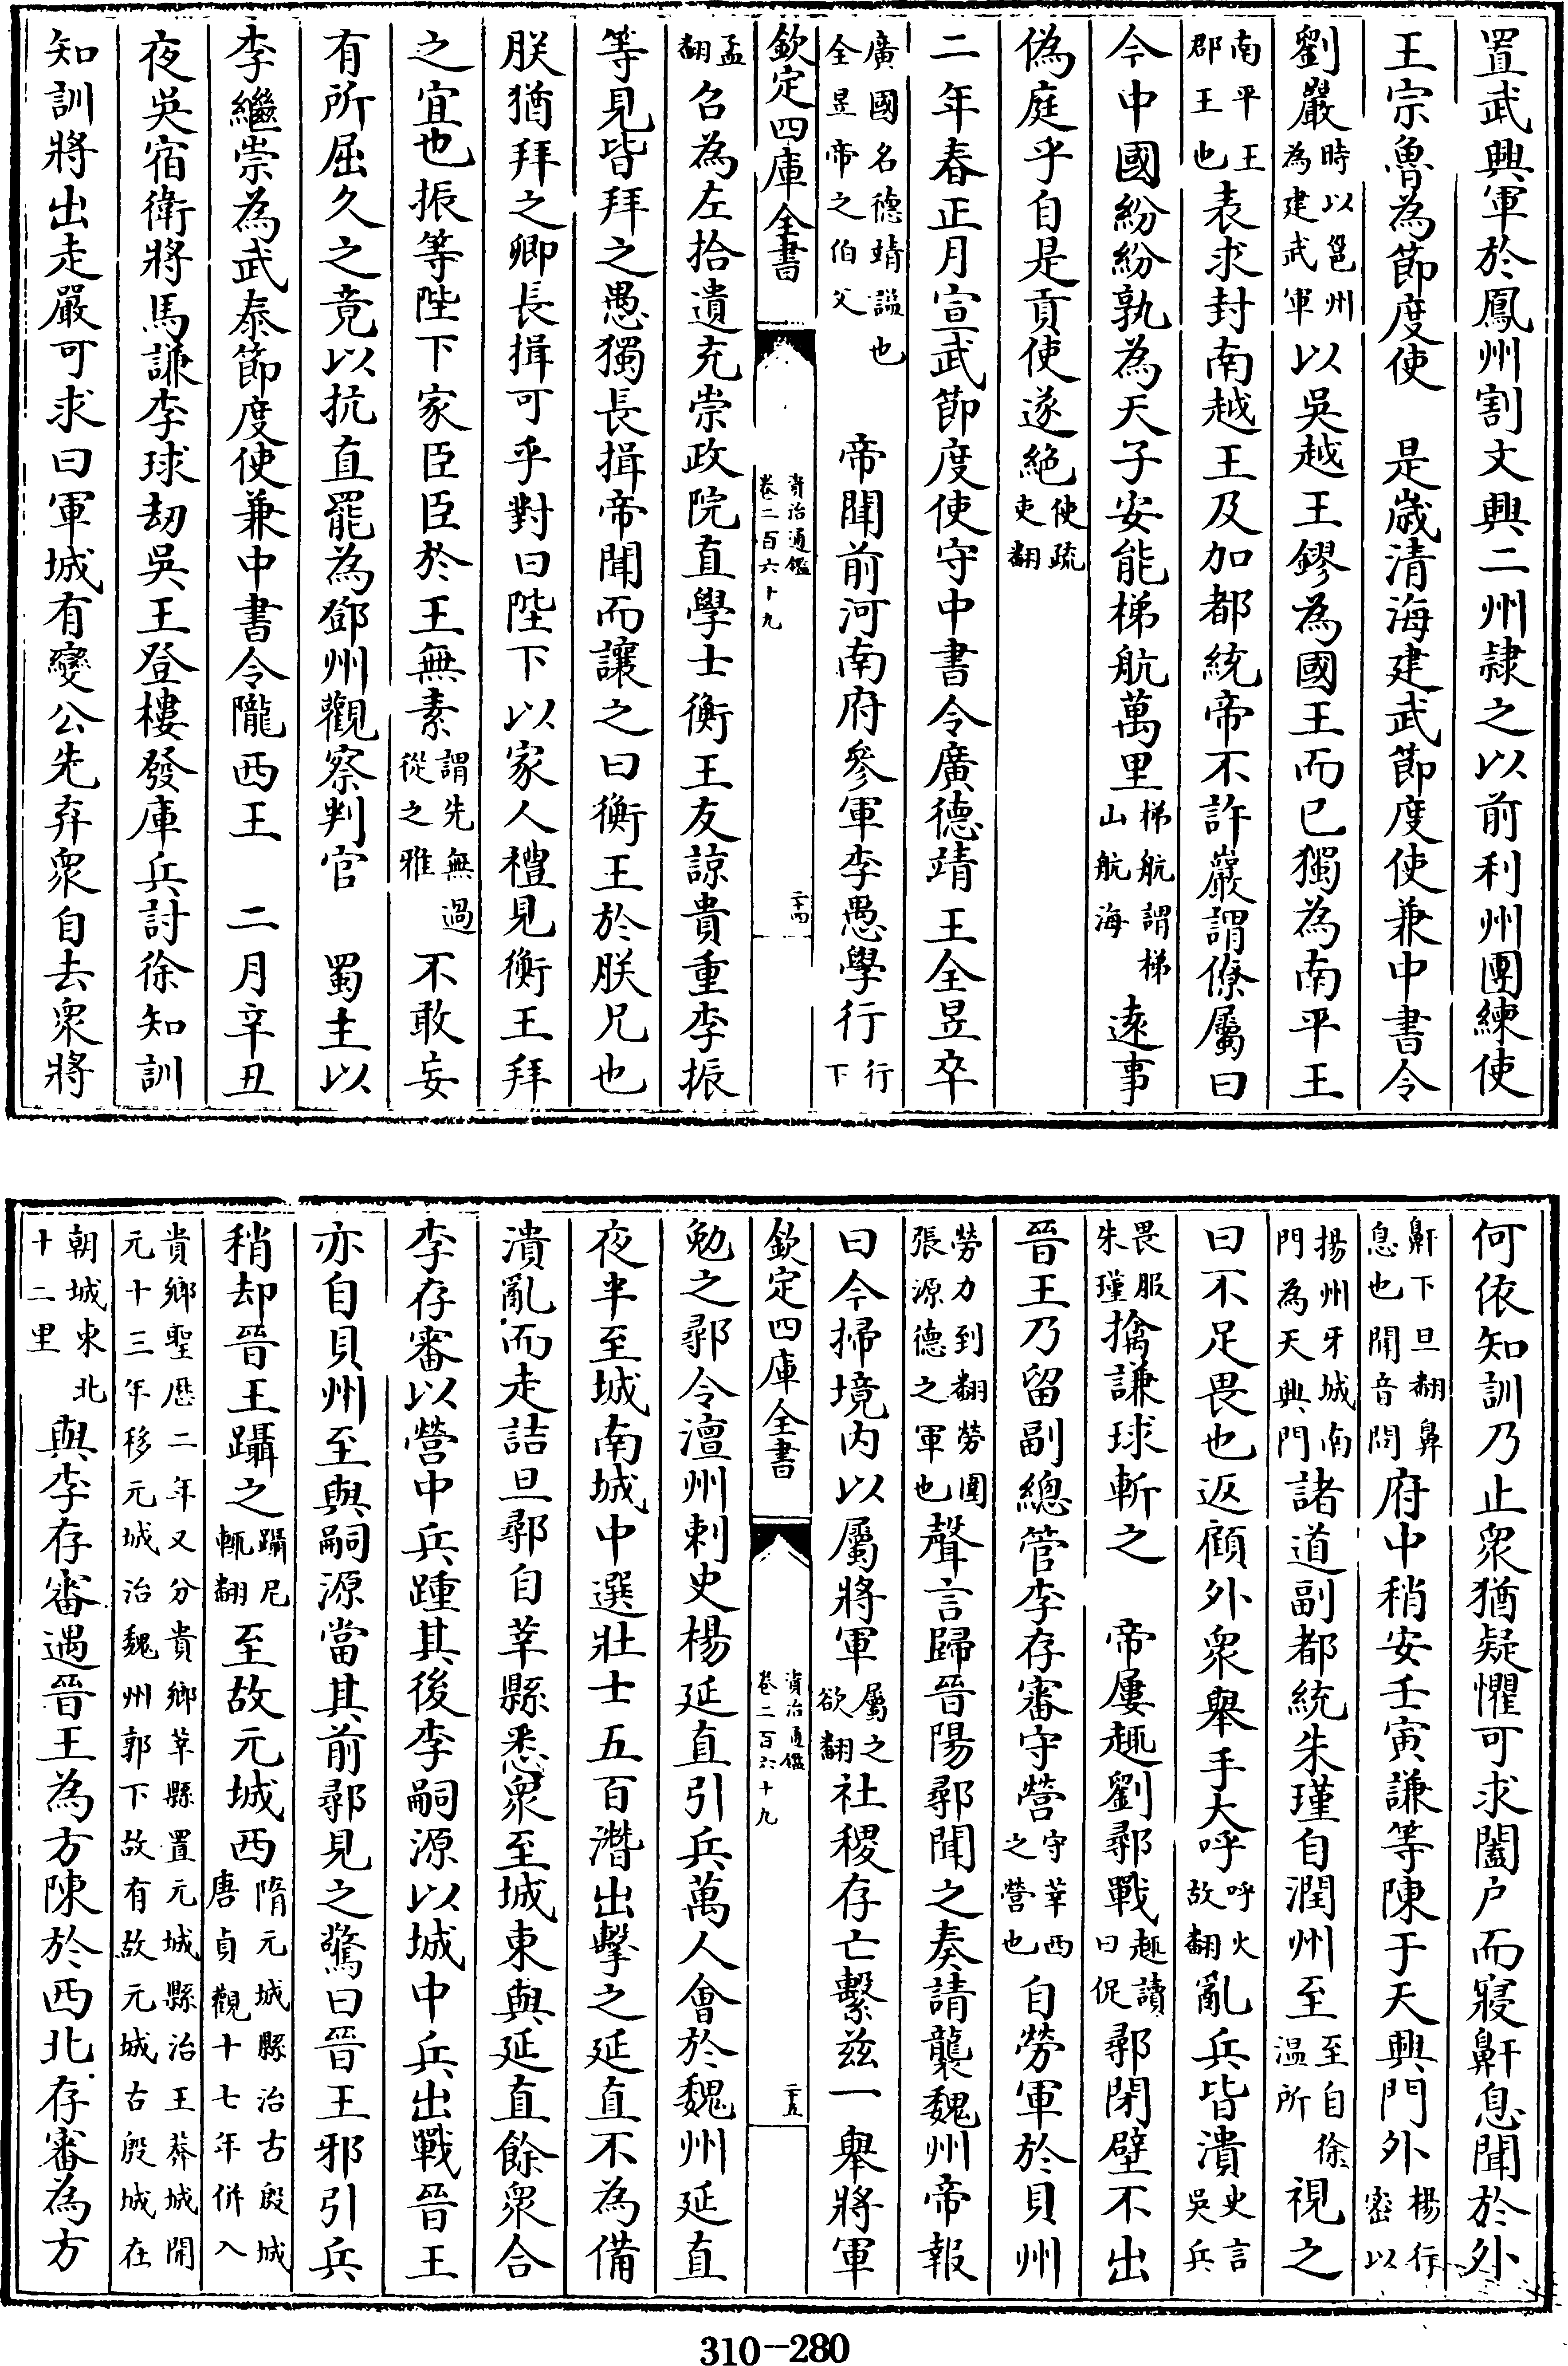 置武興軍於鳳州割文興二州𨽻之以前利州團練使
王宗魯為節度使　是歲清海建武節度使兼中書令
劉巖時以邕州為建武軍以吳越王鏐為國王而已獨為南平王
南平王郡王也表求封南越王及加都統帝不許巖謂僚屬曰
今中國紛紛孰為天子安能梯航萬里梯航謂梯山航海逺事
偽庭乎自是貢使遂絶使疏吏翻
二年春正月宣武節度使守中書令廣德靖王全昱卒
廣國名德靖諡也全昱帝之伯父　帝聞前河南府參軍李愚學行行下
欽定四庫全書　資治通鑑卷二百六十九　二十四
孟翻召為左拾遺充崇政院直學士衡王友諒貴重李振
等見皆拜之愚獨長揖帝聞而讓之曰衡王於朕兄也
朕猶拜之卿長揖可乎對曰陛下以家人禮見衡王拜
之宜也振等陛下家臣臣於王無素謂先無過從之雅不敢妄
有所屈久之竟以抗直罷為鄧州觀察判官　蜀主以
李繼崇為武泰節度使兼中書令隴西王　二月辛丑
夜吳宿衛將馬謙李球劫吳王登樓發庫兵討徐知訓
知訓將出走嚴可求曰軍城有變公先弃衆自去衆將
何依知訓乃止衆猶疑懼可求闔户而寢鼾息聞於外
鼾下旦翻鼻息也聞音問府中稍安壬寅謙等陳于天興門外楊行密以
揚州牙城南門為天興門諸道副都統朱瑾自潤州至至自徐温所視之
曰不足畏也返顧外衆舉手大呼呼火故翻亂兵皆潰史言吳兵
畏服朱瑾擒謙球斬之　帝屢趣劉鄩戰趣讀曰促鄩閉壁不出
晉王乃留副總管李存審守營守莘西之營也自勞軍於貝州
勞力到翻勞圍張源德之軍也聲言歸晉陽鄩聞之奏請襲魏州帝報
曰今掃境内以屬將軍屬之欲翻社稷存亡繫兹一舉將軍
欽定四庫全書　資治通鑑卷二百六十九　二十五
勉之鄩令澶州刺史楊延直引兵萬人會於魏州延直
夜半至城南城中選壯士五百潛出擊之延直不為備
潰亂而走詰旦鄩自莘縣悉衆至城東與延直餘衆合
李存審以營中兵踵其後李嗣源以城中兵出戰晉王
亦自貝州至與嗣源當其前鄩見之驚曰晉王邪引兵
稍却晉王躡之躡尼輒翻至故元城西隋元城縣治古殷城唐貞觀十七年併入
貴鄉聖厯二年又分貴鄉莘縣置元城縣治王莽城開元十三年移元城治魏州郭下故有故元城古殷城在
朝城東北十二里與李存審遇晉王為方陳於西北存審為方
310-280